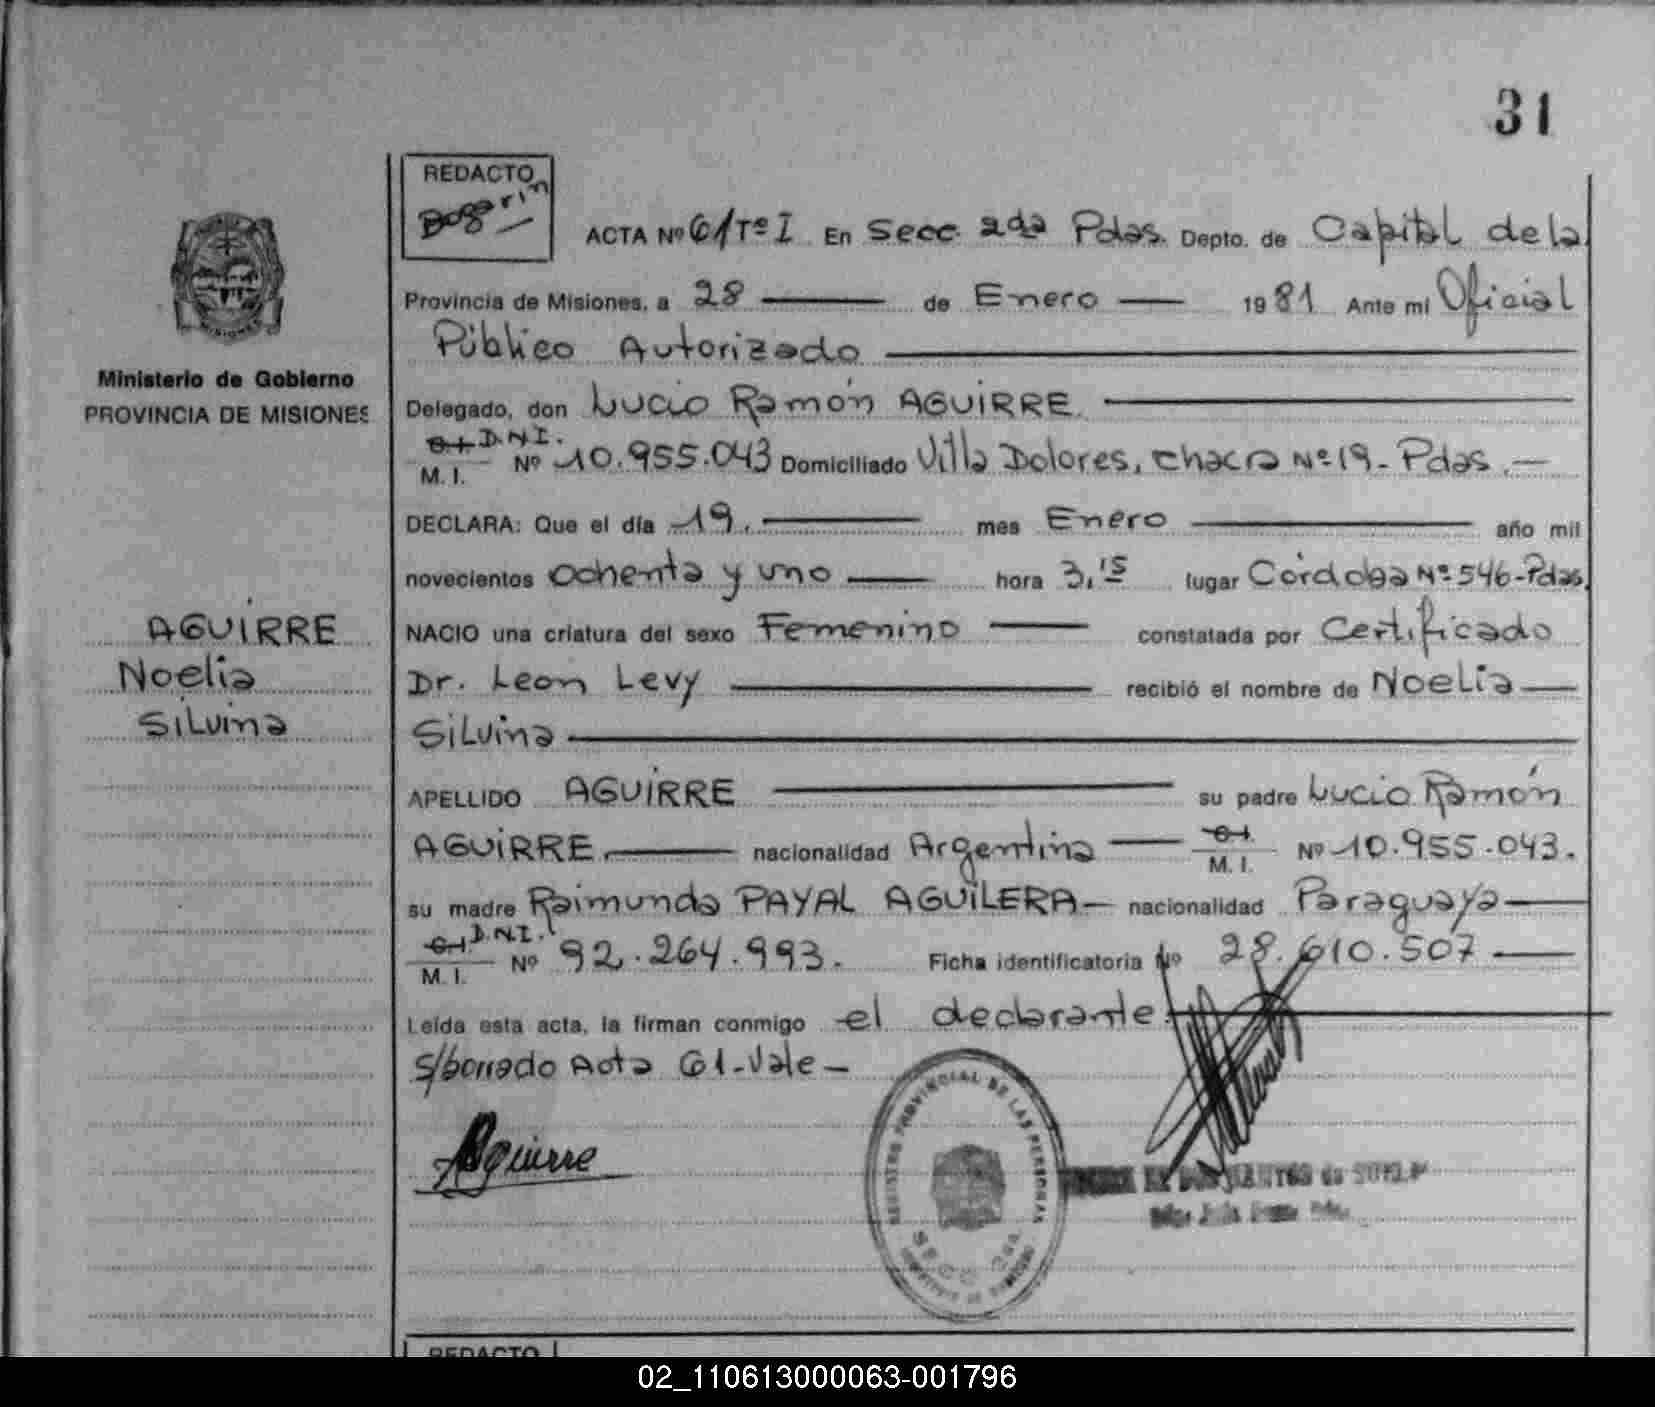 31
REDACTO
ACTA Nº 61 Tº I En Secc. 2da Pdas. Depto. de Capital de la
Provincia de Misiones, a 28 de Enero 1981 Ante mi Oficial
Público Autorizado
Ministerio de Gobierno
PROVINCIA DE MISIONES
Delegado, don Lucio Ramón AGUIRRE.
C.I. D.N.I.
M. I. Nº 10.955.043 Domiciliado Villa Dolores, chacra Nº 19.- Pdas.-
DECLARA: Que el día 19, mes Enero año mil
novecientos ochenta y uno hora 3,15 lugar Córdoba Nº 546-Pdas.
NACIO una criatura del sexo Femenino constatada por Certificado
Dr. Leon Levy recibió el nombre de Noelia
Silvina
AGUIRRE
Noelia
Silvina
APELLIDO AGUIRRE su padre Lucio Ramón
AGUIRRE. nacionalidad Argentina C.I. M. I. Nº 10.955.043.
su madre Raimunda PAYAL AGUILERA- nacionalidad Paraguaya
C.I. D.N.I.
M. I. Nº 92.264.993. Ficha identificatoria Nº 28.610.507
Leída esta acta, la firman conmigo el declarante.
S/borrado Acta 61-Vale-
Aguirre
REGISTRO PROVINCIAL DE LAS PERSONAS
REDACTO
02_110613000063-001796